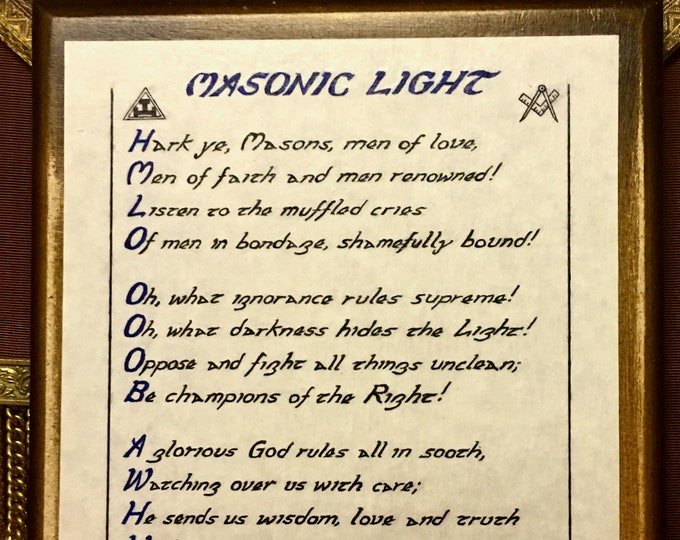 MASONIC LIGHT
Hark ye, Masons, men of love,
Men of faith and men renowned!
Listen to the muffled cries
Of men in bondage, shamefully bound!
Oh, what ignorance rules supreme!
Oh, what darkness hides the Light!
Oppose and fight all things unclean;
Be champions of the Right!
A glorious God rules all in sooth,
Watching over us with care;
He sends us wisdom, love and truth